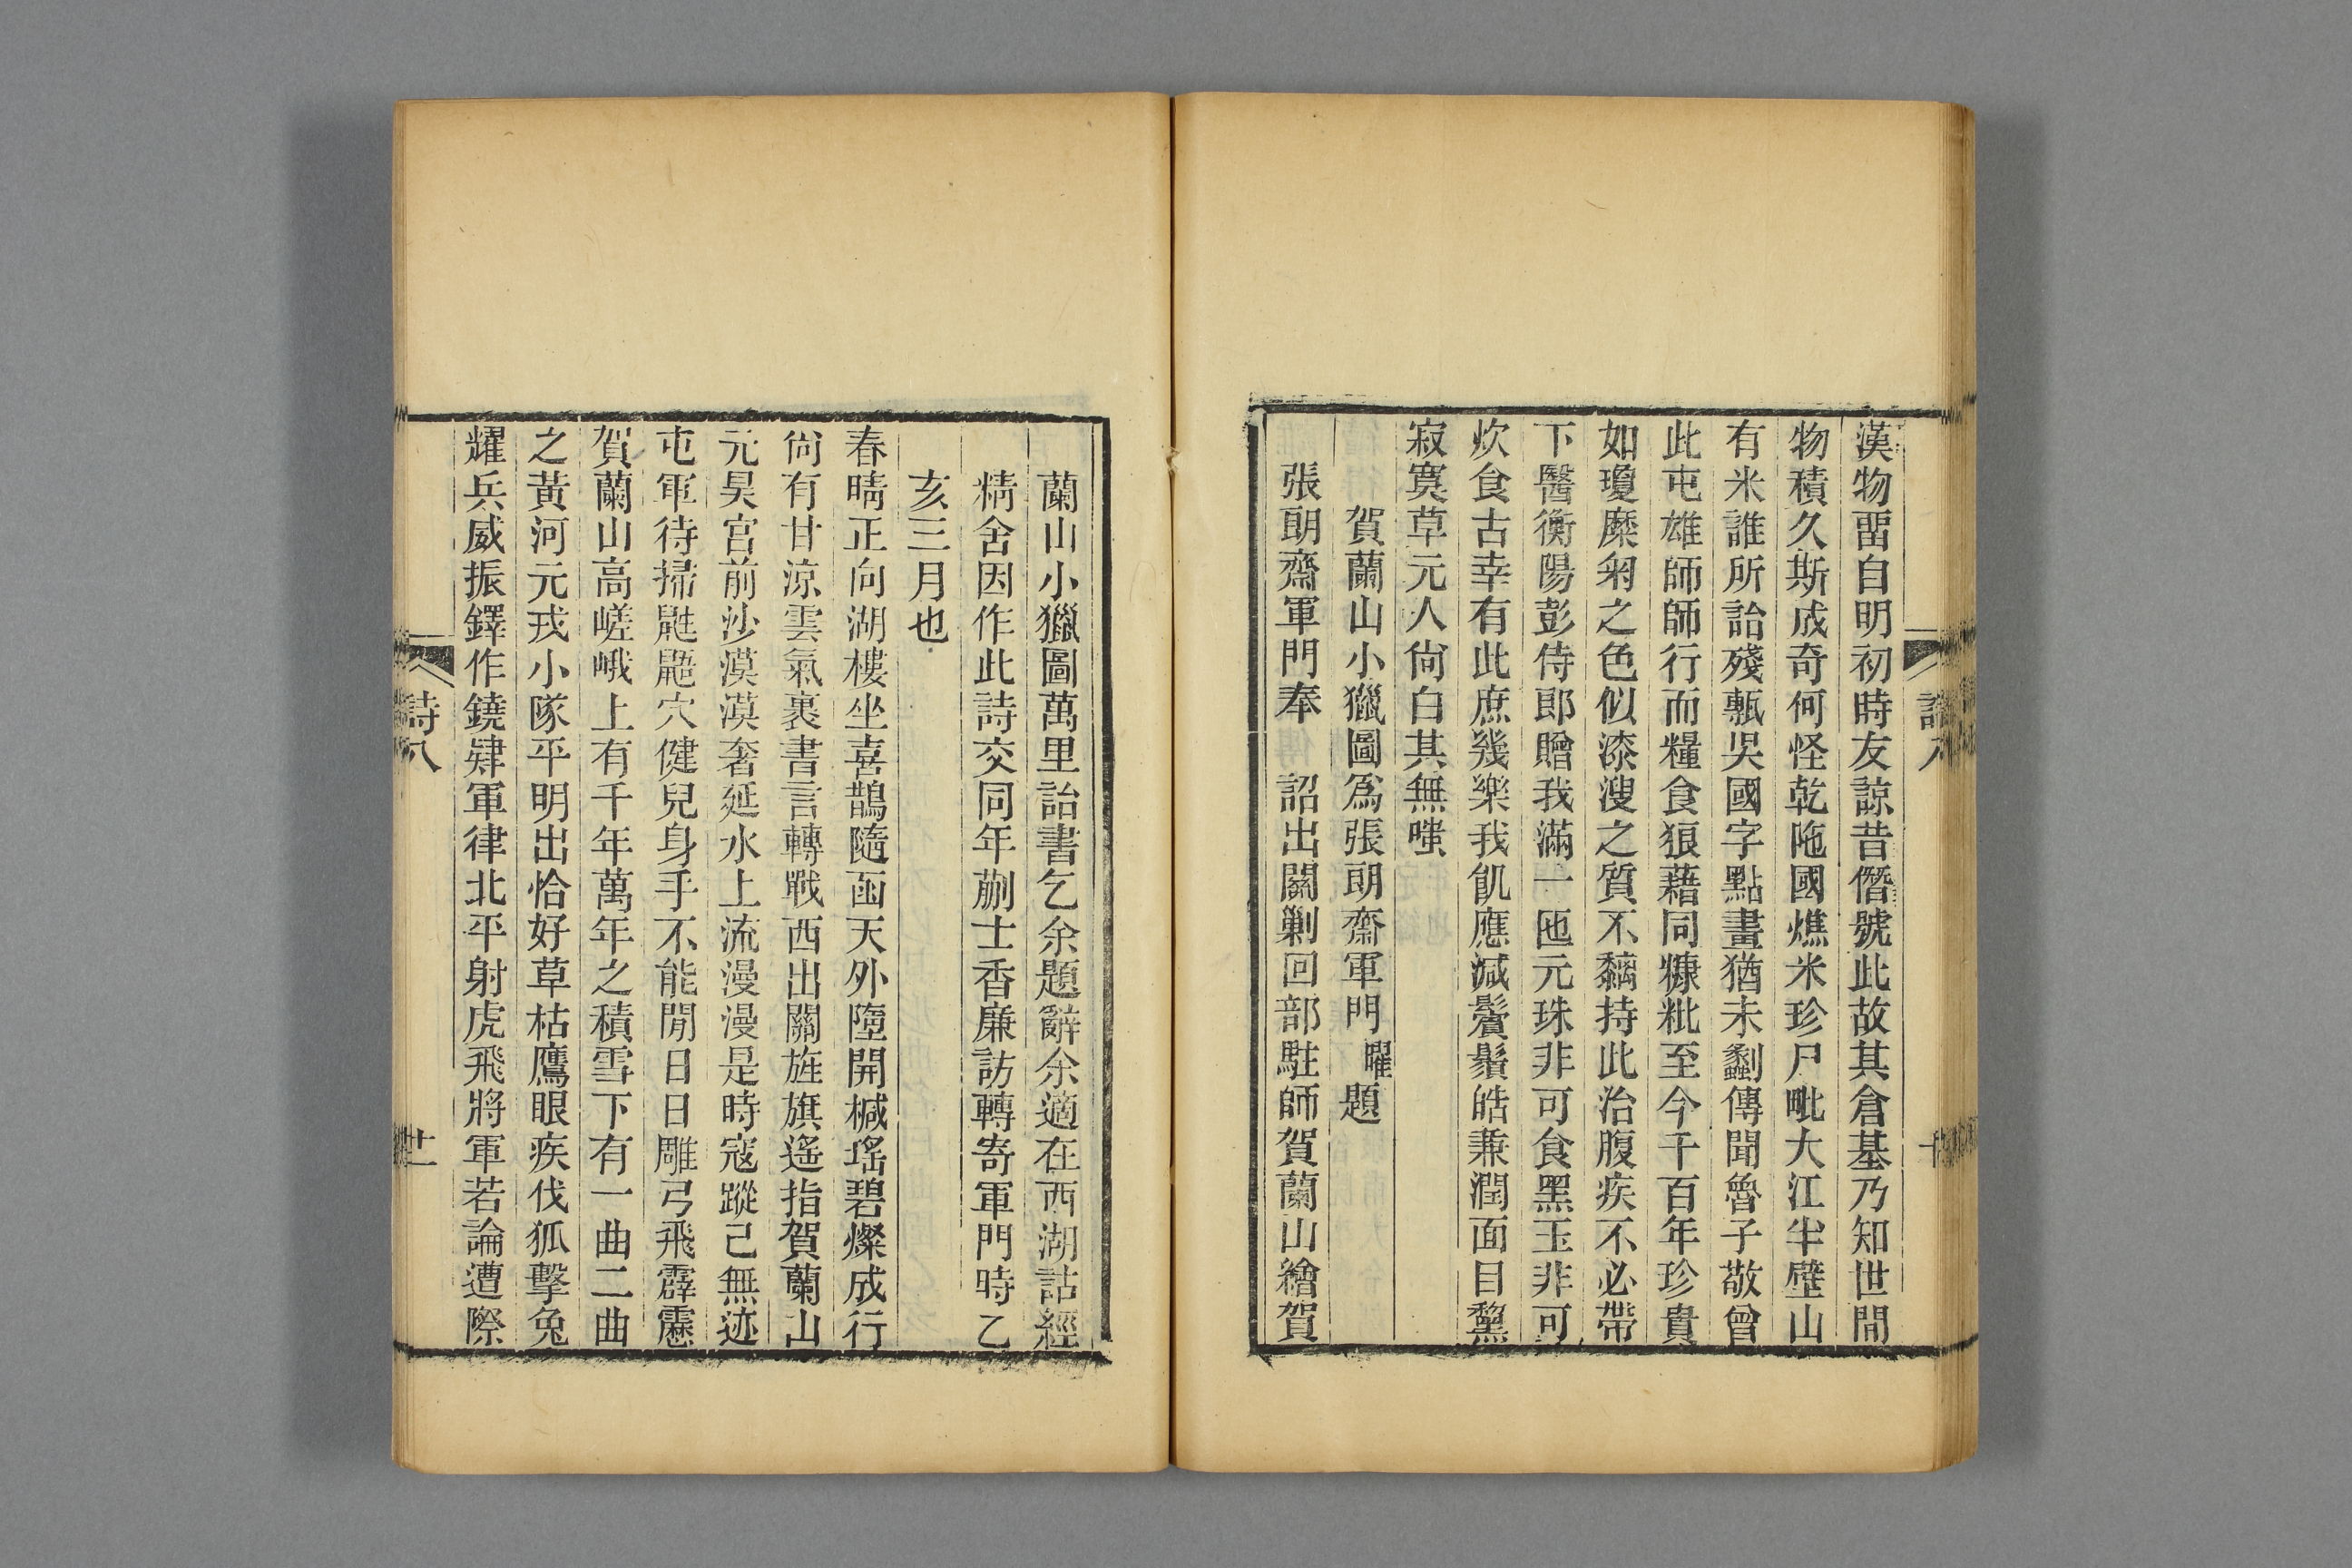 漢物畱自明初時友諒昔僭號此故其倉基乃知世間
物積久斯成奇何怪乾陁國燋米珍尸毗大江半壁山
有米誰所詒殘甎吳國字點畫猶未劙傳聞魯子敬曾
此屯雄師師行而糧食狼藉同糠粃至今千百年珍貴
如瓊糜匊之色似漆溲之質不黐持此治腹疾不必帶
下醫衡陽彭侍郎贈我滿一匜元珠非可食黑玉非可
炊食古幸有此庶幾樂我飢應減鬢鬚皓兼潤面目黧
寂寞草元人尙白其無嗤
賀蘭山小獵圖爲張朗齋軍門曜題
張朗齋軍門奉 詔出關剿回部駐師賀蘭山繪賀
蘭山小獵圖萬里詒書乞余題辭余適在西湖詁經
精舍因作此詩交同年蒯士香廉訪轉寄軍門時乙
亥三月也
春晴正向湖樓坐喜鵲隨函天外墮開椷瑤碧燦成行
尙有甘涼雲氣裹書言轉戰西出關旌旗遙指賀蘭山
元昊宮前沙漠漠奢延水上流漫漫是時寇蹤己無迹
屯軍待掃鼪鼯穴健兒身手不能閒日日雕弓飛霹靂
賀蘭山高嵯峨上有千年萬年之積雪下有一曲二曲
之黃河元戎小隊平明出恰好草枯鷹眼疾伐狐擊兔
耀兵威振鐸作鐃肄軍律北平射虎飛將軍若論遭際
詩八
廿一